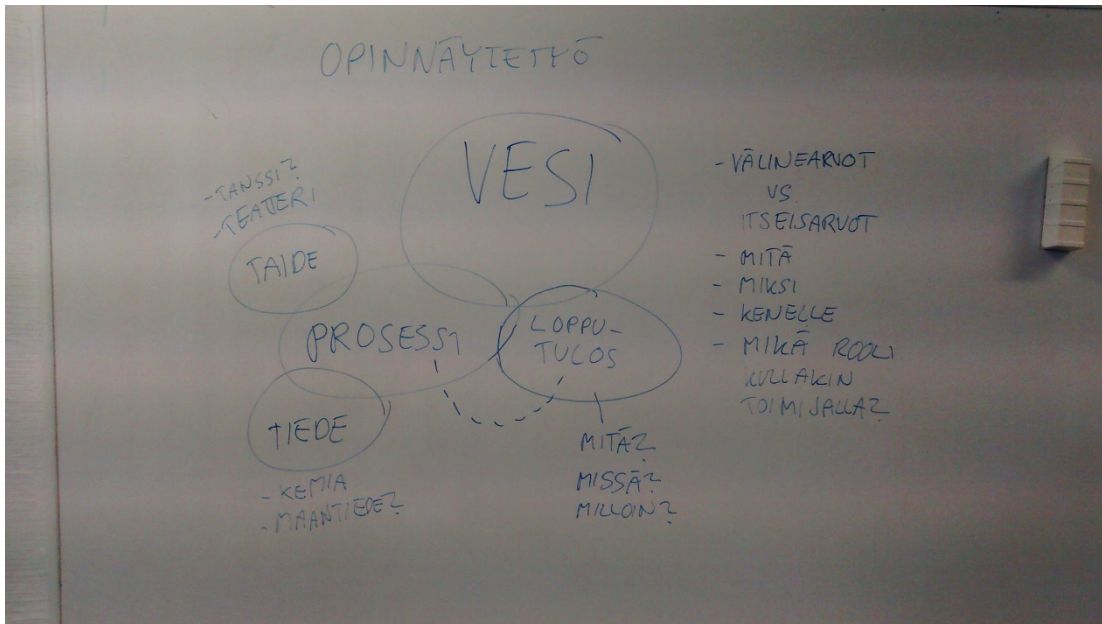 OPINNÄYTETYÖ
VESI
- TANSSI?
- TEATTERI
TAIDE
PROSESSI
LOPPU-
TULOS
TIEDE
- KEMIA
- MAANTIEDE?
MITÄ?
MISSÄ?
MILLOIN?
- VÄLINEARVOT
VS
ITSEISARVOT
- MITÄ
- MIKSI
- KENELLE
- MIKÄ ROOLI
KULLAKIN
TOIMIJALLA?